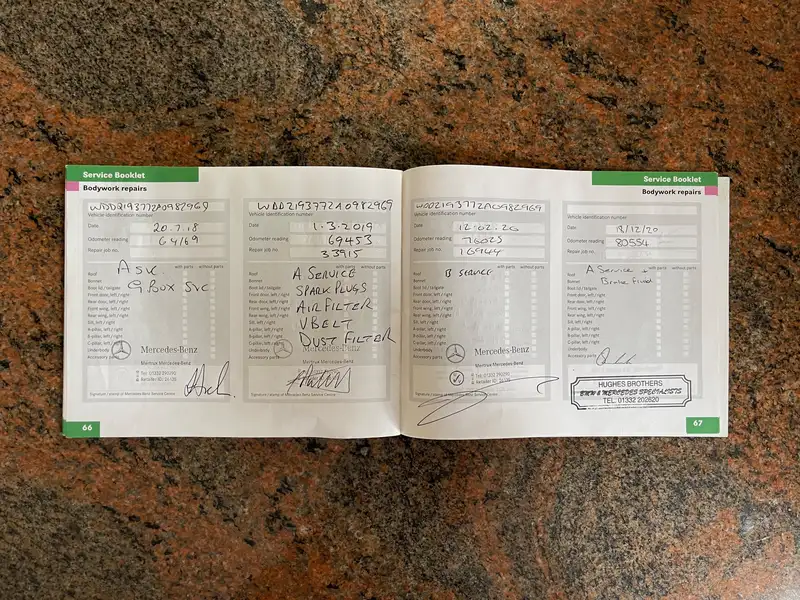 Service Booklet
Bodywork repairs
WDD2193772A0982969
Vehicle identification number
Date 20.7.18
Odometer reading 64169
Repair job no.
A SVC
G BOX SVC
with parts without parts
Roof
Bonnet
Boot lid / tailgate
Front door, left / right
Rear door, left / right
Front wing, left / right
Rear wing, left / right
Sill, left / right
A-pillar, left / right
B-pillar, left / right
C-pillar, left / right
Underbody
Accessory parts
Mercedes-Benz
Mantrue Mercedes-Benz
Signature / stamp of Mercedes-Benz Service Centre
66
WDD2193772A0982969
Vehicle identification number
Date 1.3.2019
Odometer reading 69453
Repair job no. 33915
with parts without parts
A SERVICE
SPARK PLUGS
AIR FILTER
V BELT
DUST FILTER
Roof
Bonnet
Boot lid / tailgate
Front door, left / right
Rear door, left / right
Front wing, left / right
Rear wing, left / right
Sill, left / right
A-pillar, left / right
B-pillar, left / right
C-pillar, left / right
Underbody
Accessory parts
Mercedes-Benz
Signature / stamp of Mercedes-Benz Service Centre
Service Booklet
Bodywork repairs
WDD2193772A0982969
Vehicle identification number
Date 12.02.20
Odometer reading 76023
Repair job no. 16944
with parts without parts
B SERVICE
Roof
Bonnet
Boot lid / tailgate
Front door, left / right
Rear door, left / right
Front wing, left / right
Rear wing, left / right
Sill, left / right
A-pillar, left / right
B-pillar, left / right
C-pillar, left / right
Underbody
Accessory parts
Mercedes-Benz
Signature / stamp of Mercedes-Benz Service Centre
Vehicle identification number
Date 18/12/20
Odometer reading 80554
Repair job no.
with parts without parts
A Service +
Brake Fluid
Roof
Bonnet
Boot lid / tailgate
Front door, left / right
Rear door, left / right
Front wing, left / right
Rear wing, left / right
Sill, left / right
A-pillar, left / right
B-pillar, left / right
C-pillar, left / right
Underbody
Accessory parts
HUGHES BROTHERS
BMW & MERCEDES SPECIALISTS
TEL. 01332 202620
67